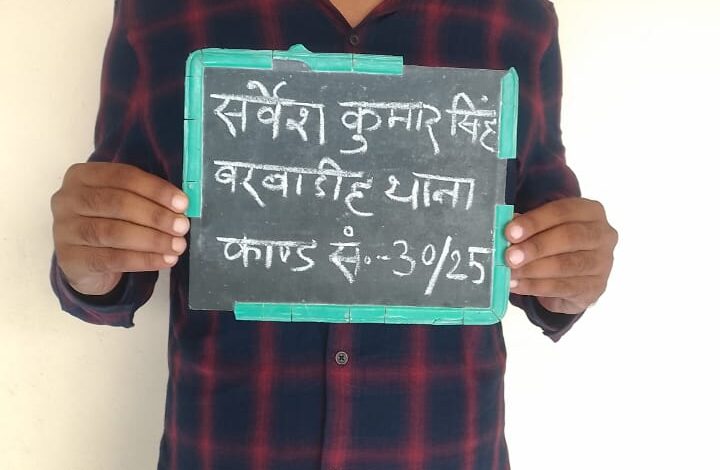 सर्वेश कुमार सिंह
बरबाडीह थाना
काण्ड सं०-30/25